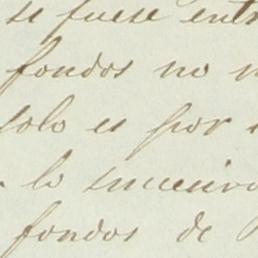 se fuese
fondos no
solo es por
lo sucesivo
fondos de